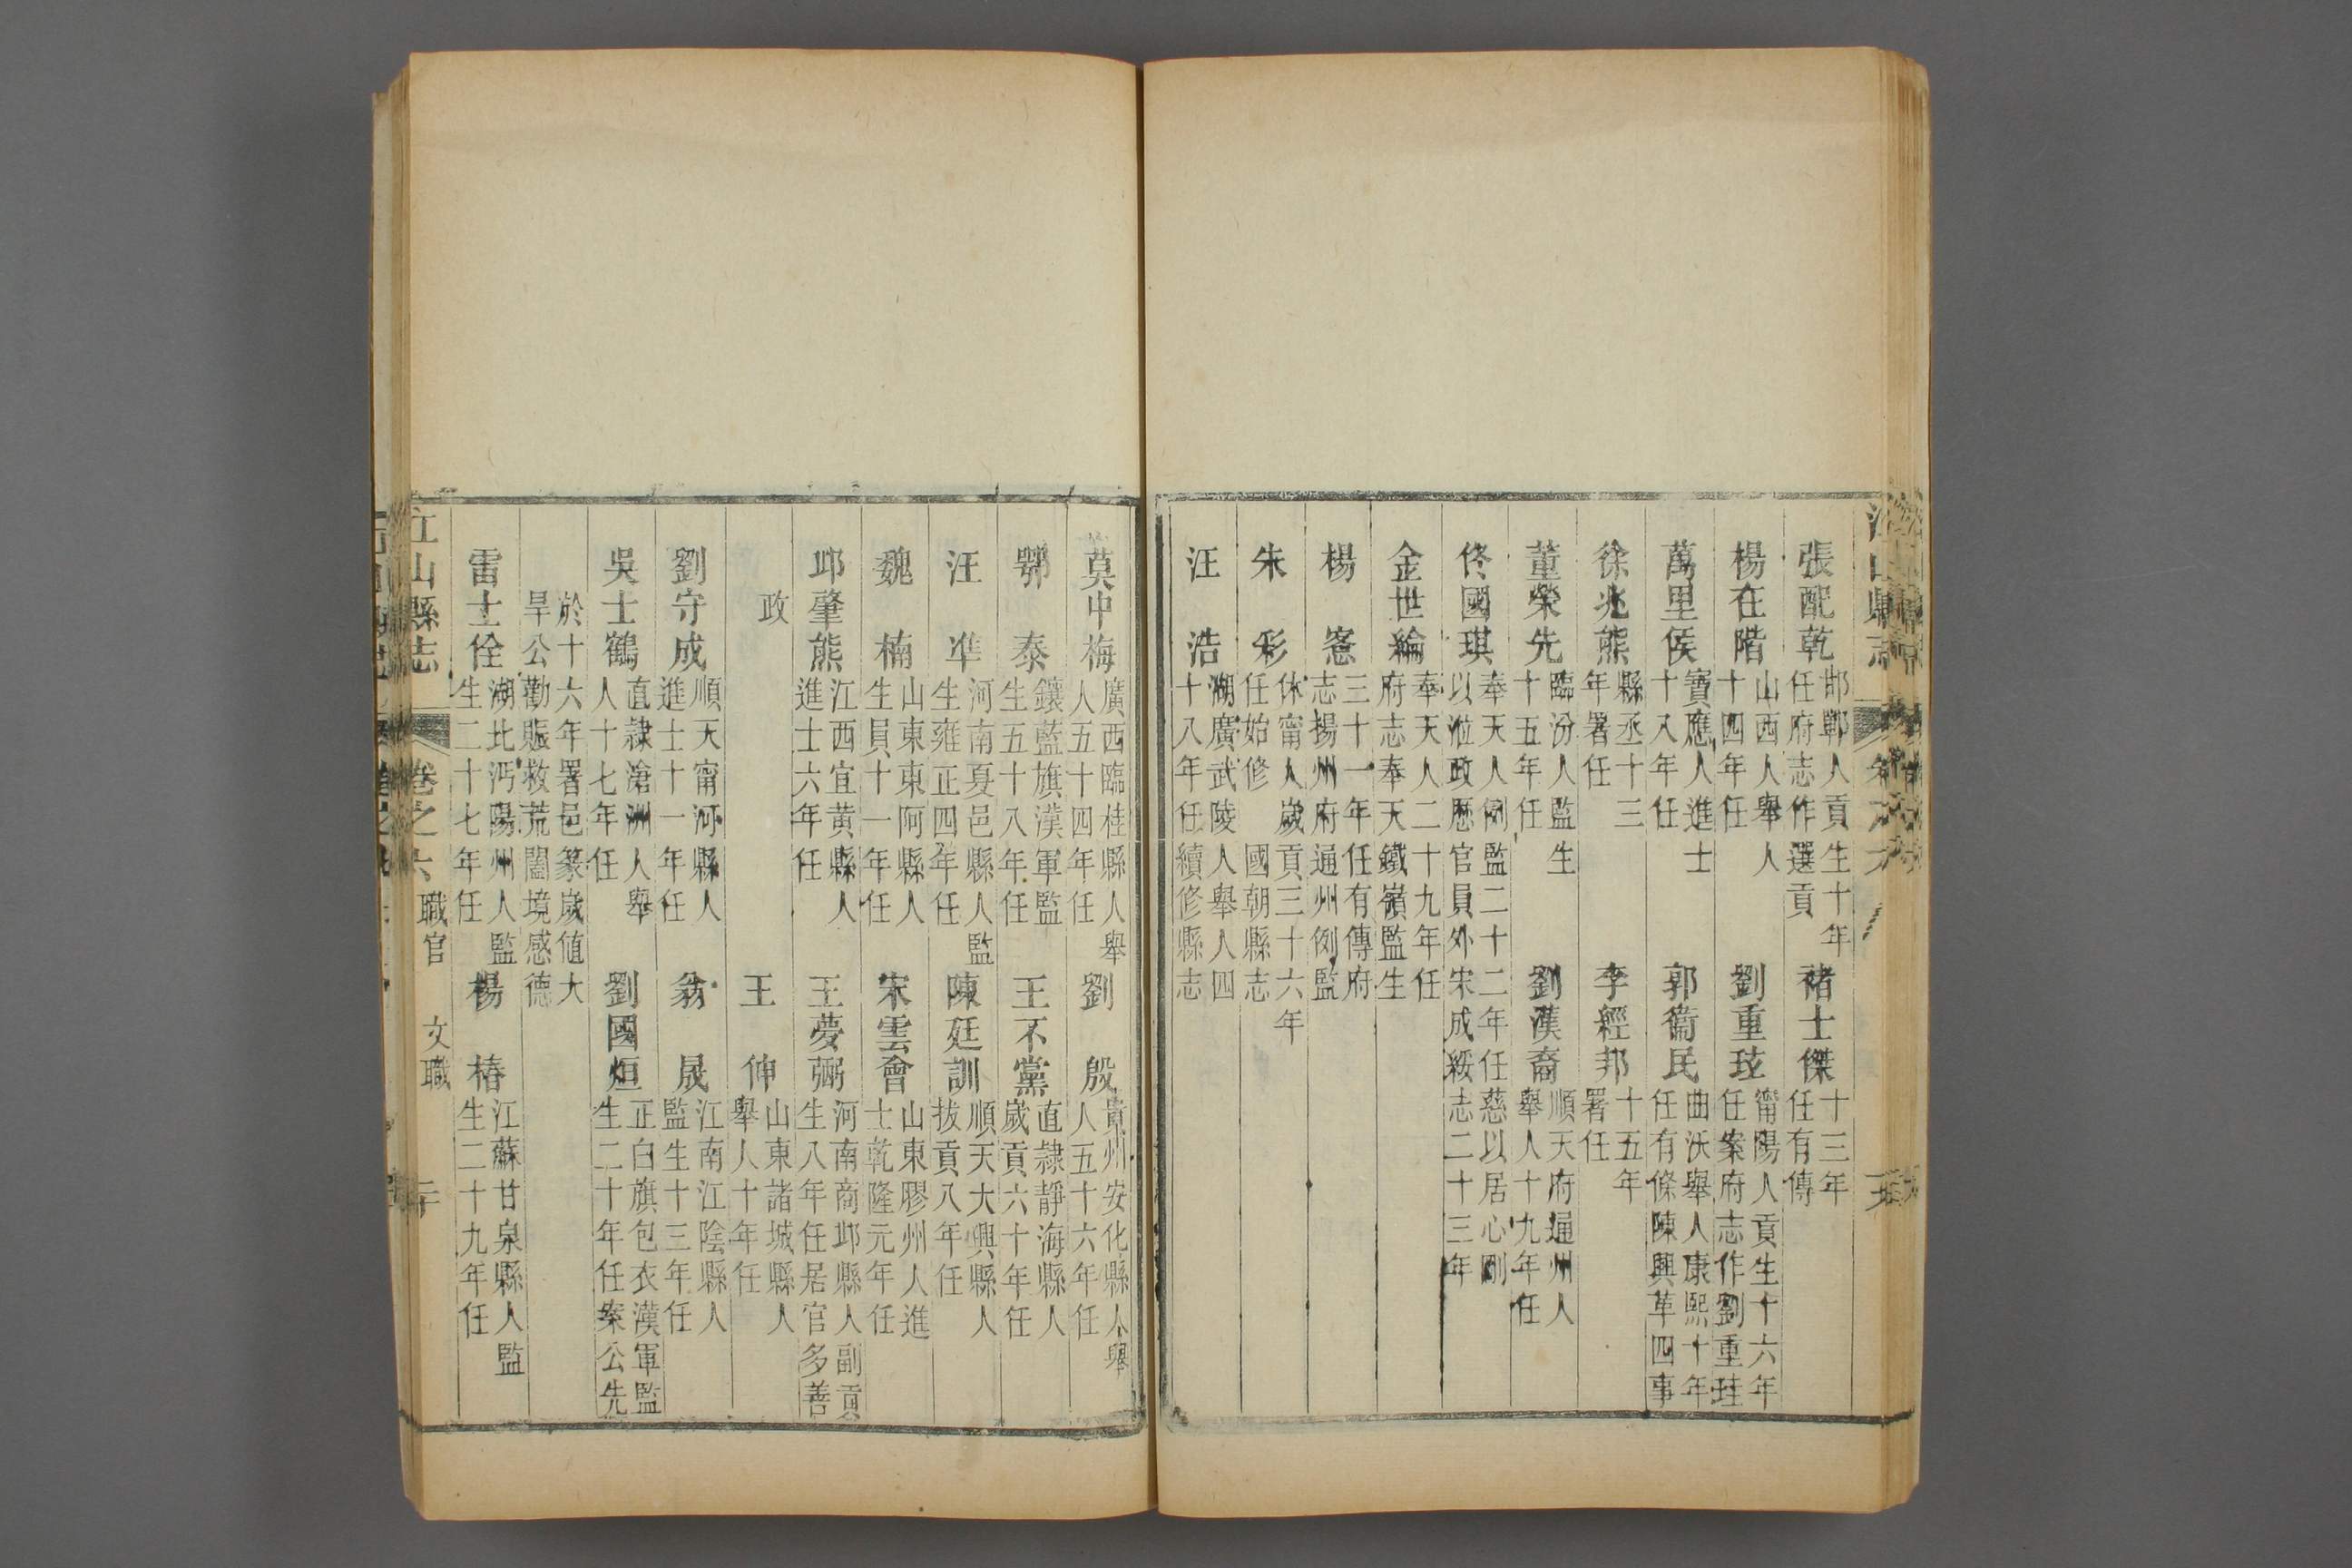 張配乾 邯鄲人貢生十年
任府志作選貢
褚士傑 十三年
任有傳
楊在階 山西人舉人
十四年任
劉重玹 甯陽人貢生十六年
任案府志作劉重珪
萬里侯 寶應人進士
十八年任
郭衞民 曲沃舉人康熙十年
任有條陳興革四事
徐兆熊 縣丞十三
年署任
李經邦 十五年
署任
董榮先 臨汾人監生
十五年任
劉漢裔 順天府通州人
舉人十九年任
佟國琪 奉天人例監二十二年任慈以居心剛
以涖政歷官員外宋成綏志二十三年
金世綸 奉天人二十九年任
府志奉天鐵嶺監生
楊窻 三十一年任有傳府
志揚州府通州例監
朱彩 休甯人歲貢三十六年
任始修 國朝縣志
汪浩 湖廣武陵人舉人四
十八年任續修縣志
莫中梅 廣西臨桂縣人舉
人五十四年任
劉殷 貴州安化縣人舉
人五十六年任
鄂泰 鑲藍旗漢軍監
生五十八年任
王不黨 直隸靜海縣人
歲貢六十年任
汪準 河南夏邑縣人監
生雍正四年任
陳廷訓 順天大興縣人
拔貢八年任
魏楠 山東東阿縣人
生員十一年任
宋雲會 山東膠州人進
士乾隆元年任
邱肇熊 江西宜黄縣人
進士六年任
王夢弼 河南商邱縣人副貢
生八年任居官多善
政
王伸 山東諸城縣人
舉人十年任
劉守成 順天甯河縣人
進士十一年任
翁晟 江南江陰縣人
監生十三年任
吳士鶴 直隸滄洲人舉
人十七年任
劉國烜 正白旗包衣漢軍監
生二十年任案公先
於十六年署邑篆歲值大
旱公勸賑救荒闔境感德
雷士佺 湖北沔陽州人監
生二十七年任
楊椿 江蘇甘泉縣人監
生二十九年任
江山縣志 卷之六 職官 文職 二十